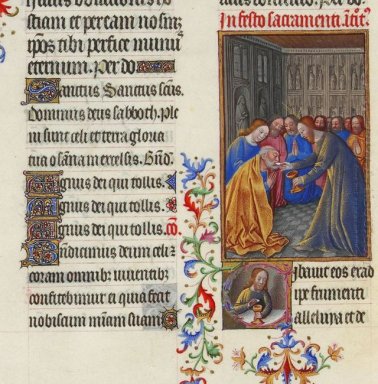 stiam et peream no sus
ipos tibi perfice munus
eternum. Per do
Sanctus Sanctus scus.
Dominus deus sabboth. Ple
ni sunt celi et terra gloria
tua osanna in excelsis. Bnd.
Agnus dei qui tollis.
Agnus dei qui tollis.
Agnus dei qui tollis. co.
Benedicimus deum celi
coram omnibz viventibz
confitebimur ei quia fecit
nobiscum miam suam
In festo sacramenti.
Cibavit eos ex ad
ipe frumenti
alleluya et de